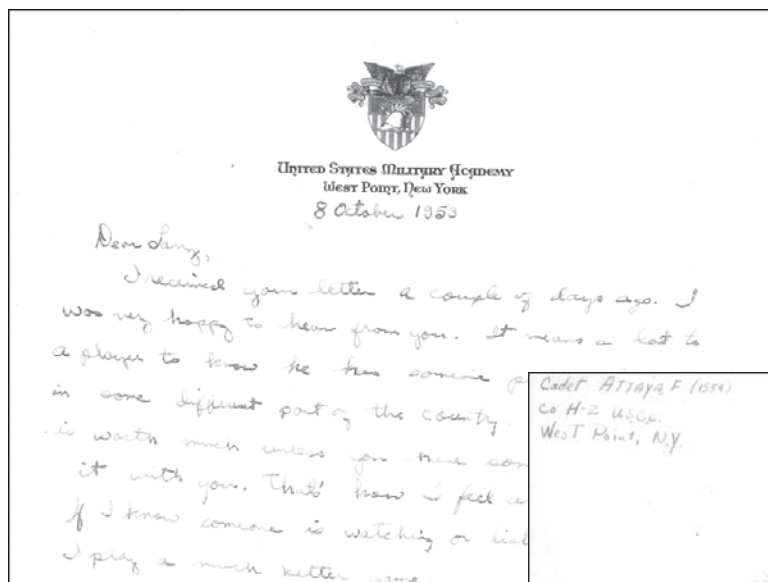 United States Military Academy
West Point, New York
8 October 1953
Dear Larry,
I received your letter a couple of days ago. I
was very happy to hear from you. It means a lot to
a player to know he has someone
in some different part of the country.
is worth much unless you have
it with you. That's how I feel
If I know someone is watching or
I play a much better game
Cadet ATTAYA, F (1954)
Co H-2 U.S.C.C.
West Point, N.Y.